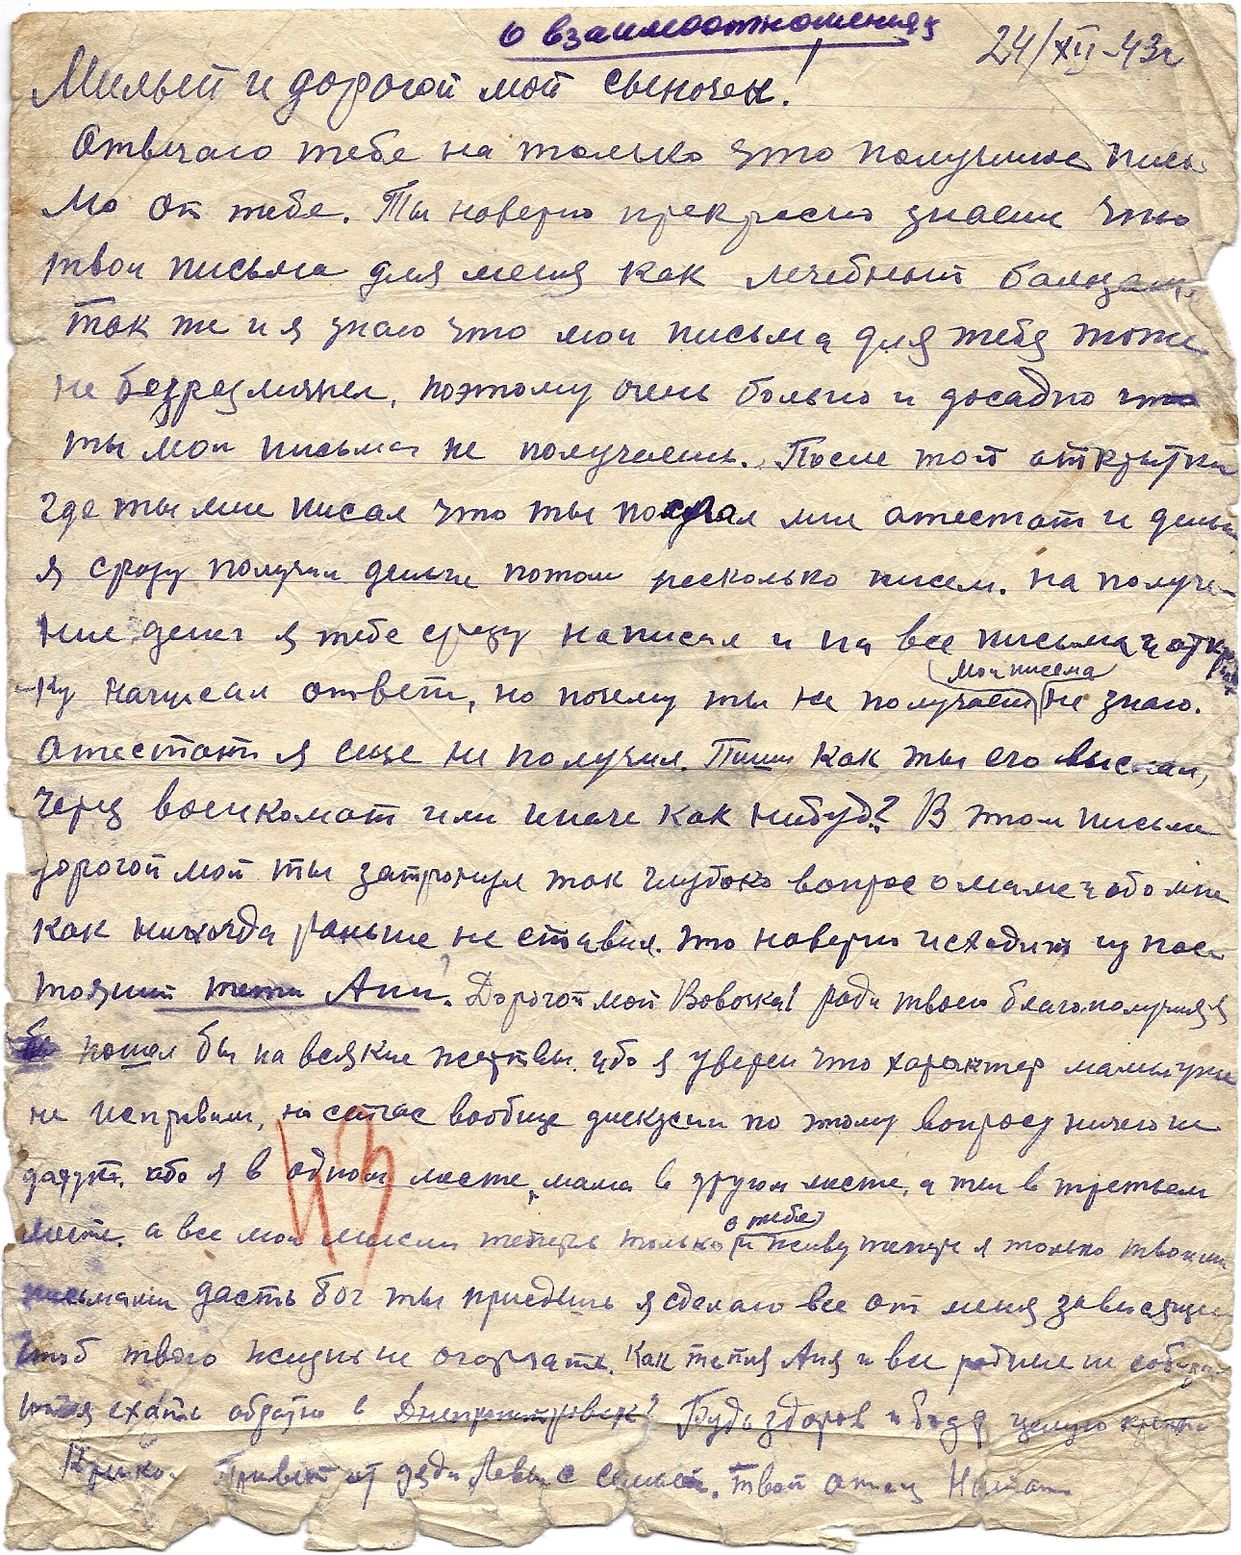 о взаимоотношениях
24/XII-43г
Милый и дорогой мой сыночек!
Отвечаю тебе на только что полученое пись
мо от тебя. Ты наверно прекрасно знаеш что
твои письма для меня как лечебный бальзам
так же и я знаю что мои письма для тебя тоже
не безразличны, поэтому очень больно и досадно что
ты мои письма не получаешь. После той открытки
где ты мне писал что ты послал мне атестат и деньги
я сразу получил деньги потом несколько писем. на получе-
ние денег я тебе сразу написал и на все письма и откр
ку написал ответ, но почему ты не получаеш (мои письма) не знаю.
атестат я еще не получил. Пиши как ты его выслал,
через военкомат или иначе как нибудь? В этом письме
дорогой мой ты затронул так глубоко вопрос о маме и обо мне
как никогда раньше не ставил. это наверно исходит из нас
тояний тети Ани. Дорогой мой Вовочка! ради твоего благополучия я
пошел бы на всякие жертвы. ибо я уверен что характер мамы уже
не исправим, но сейчас вообще дискусии по этому вопросу ничего не
дадут. ибо я в одном месте, мама в другом месте, а ты в третьем
месте. а все мои мысли теперь только о тебе и живу теперь я только твоими
письмами дасть бог ты приедешь я сделаю все от меня зависящее
чтоб твою жизнь не огорчать. Как тетя Аня и все родные не собира
ются ехать обратно в Днепропетровск? Будь здоров и бодр целую крепко
крепко. Привет от дяди Левы с семьей. твой отец Натан